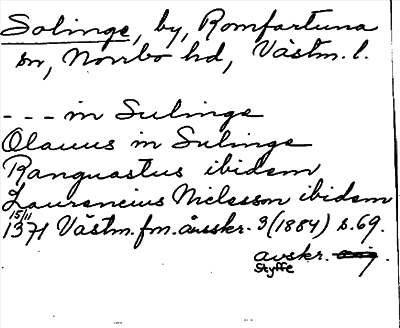 Solinge, by, Romfartuna
sn, Norrbo hd, Västm. l.
--- in Sulinge
Olauus in Sulinge
Ranguastus ibidem
Laurencius Nielsson ibidem
15/11
1371 Västm. fm. årsskr. 3 (1884) s. 69.
avskr.
Styffe